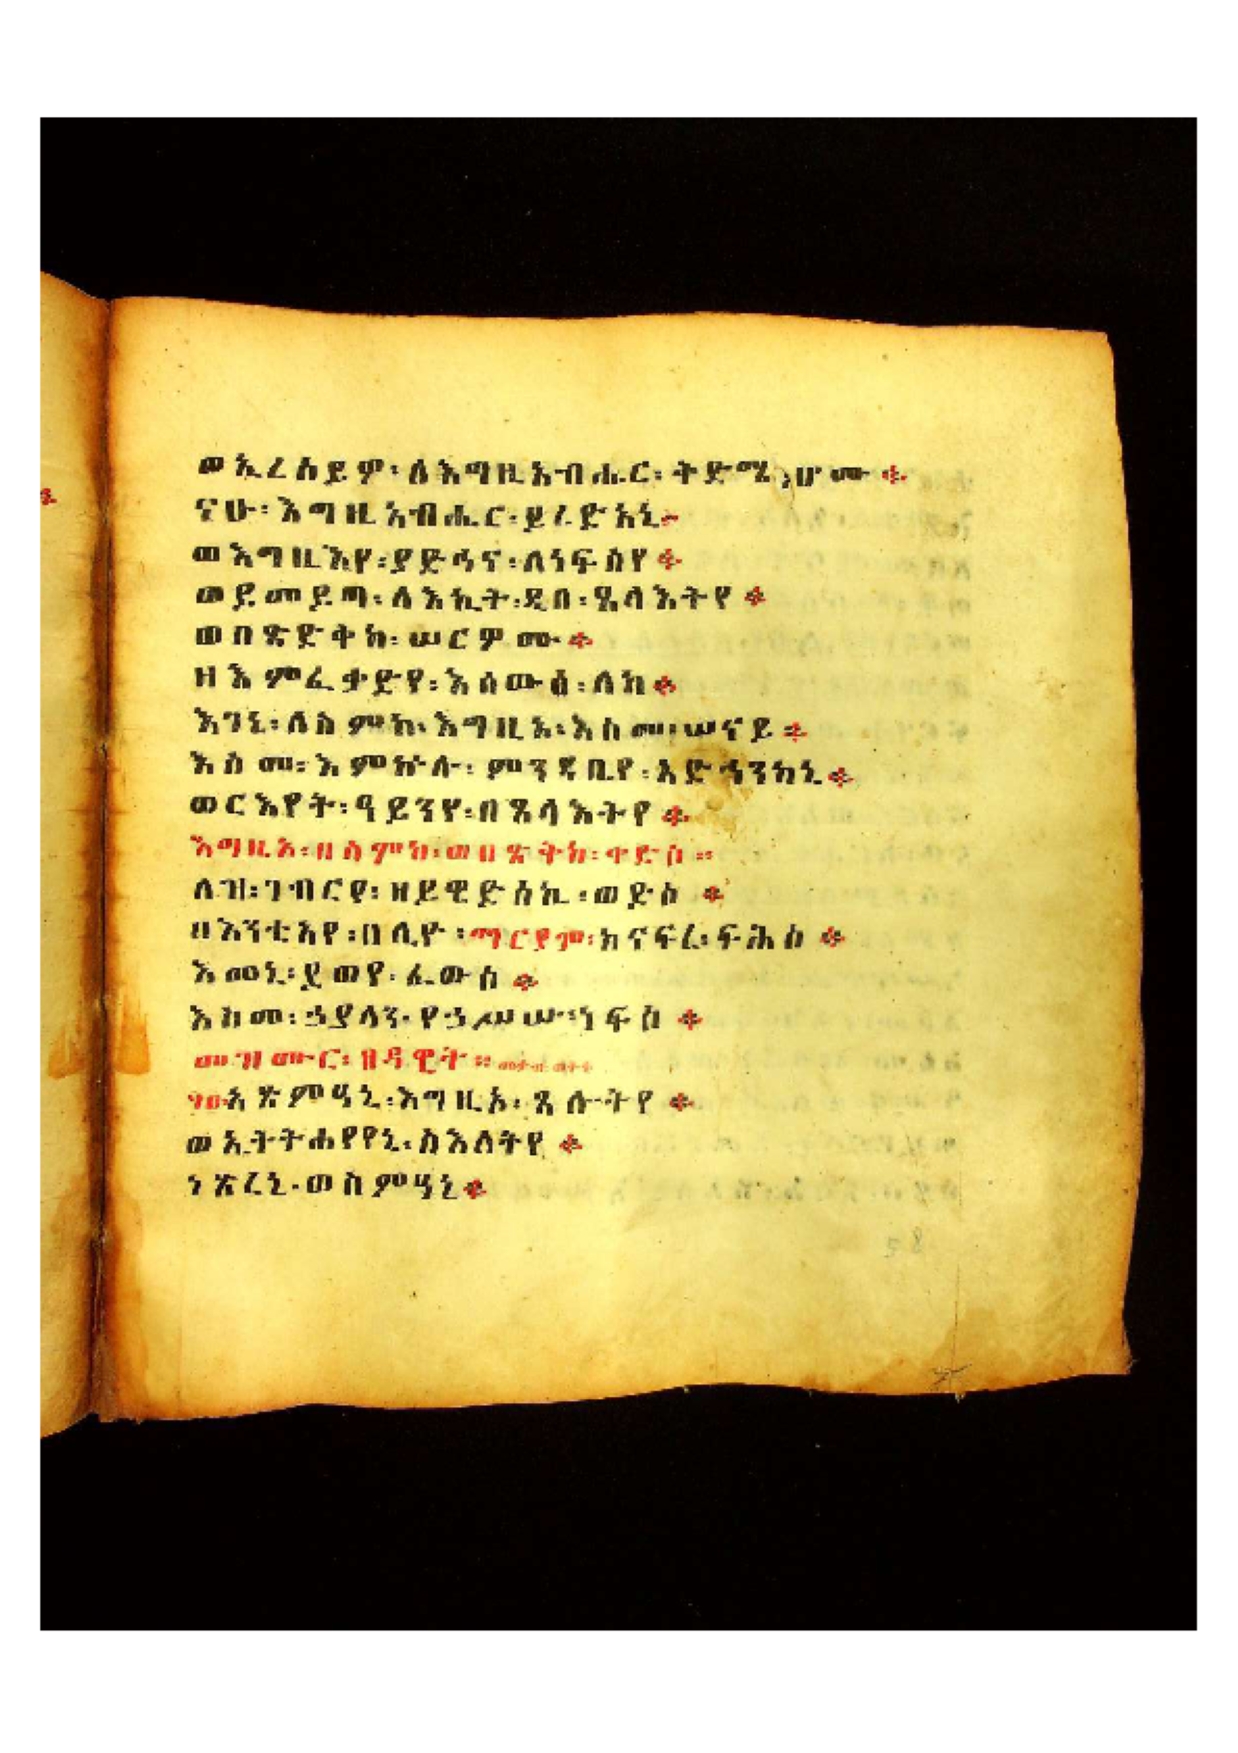 ወኢረሰይዎ፡ ለእግዚአብሔር፡ ትድሜሁሙ ፨
ናሁ፡ እግዚአብሔር፡ ይረድአኒ፨
ወእግዚእየ፡ ያድኅና፡ ለነፍስየ ፨
ወይመይጣ፡ ለእኪት፡ ዲበ፡ ጸላእትየ ፨
ወበጽድቅከ፡ ሠርዎሙ፨
ዘእምፈቃድየ፡ እሰውዕ፡ ለከ፨
እገኒ፡ ለስምከ፡ እግዚኦ፡ እስመ፡ ሠናይ ፨
እስመ፡ እምኵሉ፡ ምንዳቤየ፡ አድኅንከኒ፨
ወርእየት፡ ዓይንየ፡ በጸላእትየ ፨
እግዚኦ፡ በስምከ፡ ወበጽድቅከ፡ ቅድስ ።
ለዝ፡ ገብርየ፡ ዘይዌድሰኪ፡ ወድስ ፨
ዘእንቲአየ፡ በሊዮ፡ ማርያም፡ ክናፍረ፡ ፍሕሰ ፨
እመኒ፡ ደወየ፡ ፈውስ ፨
አከመ፡ ኃያላን፡ የኃሥሡ፡ ነፍስ ፨
መዝሙር፡ ዘዳዊት ።
፶፬አጽምዓኒ፡ እግዚኦ፡ ጸሎትየ ፨
ወኢትትሐየየኒ፡ ስእለትየ ፨
ነጽረኒ፡ ወስምዓኒ፨